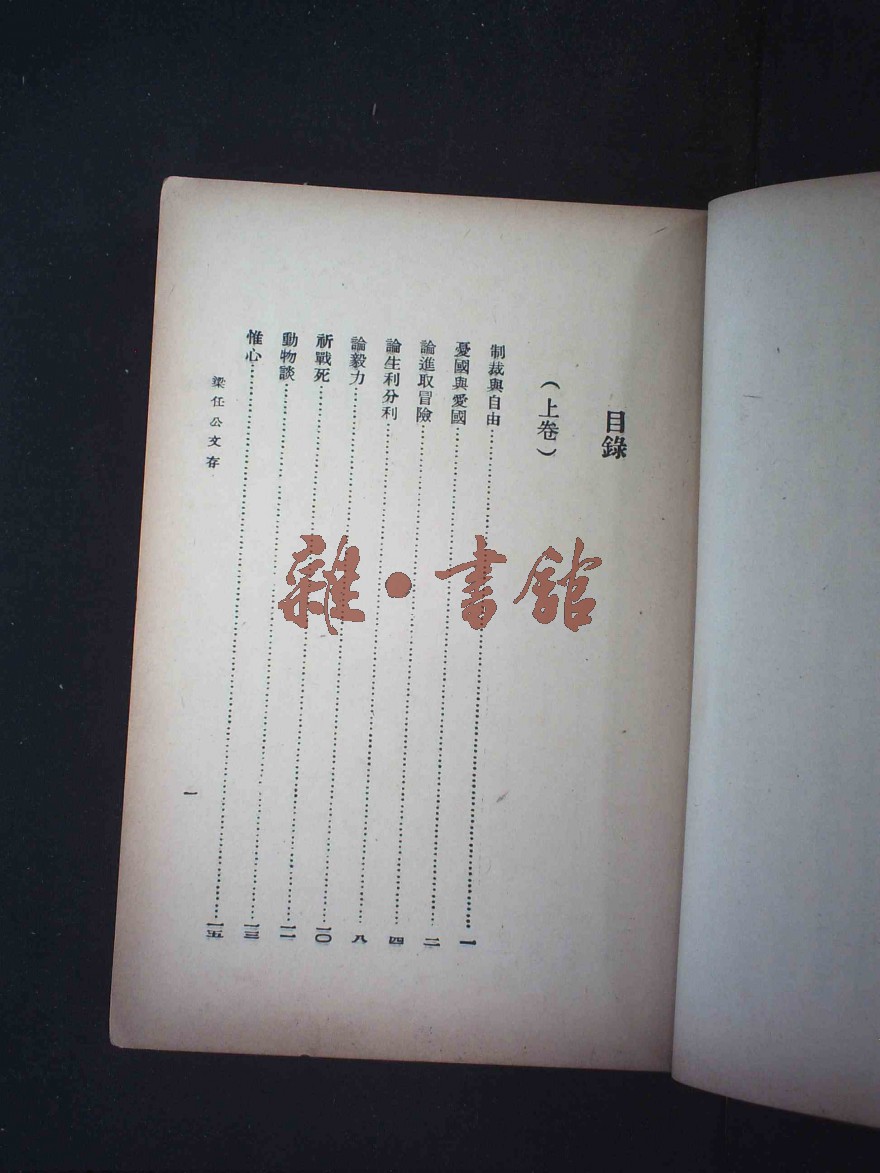 目錄
（上卷）
制裁與自由……一
憂國與愛國……二
論進取冒險……四
論生利分利……八
論毅力……一〇
祈戰死……一一
動物談……一三
惟心……一五
梁任公文存
一
雜·書館